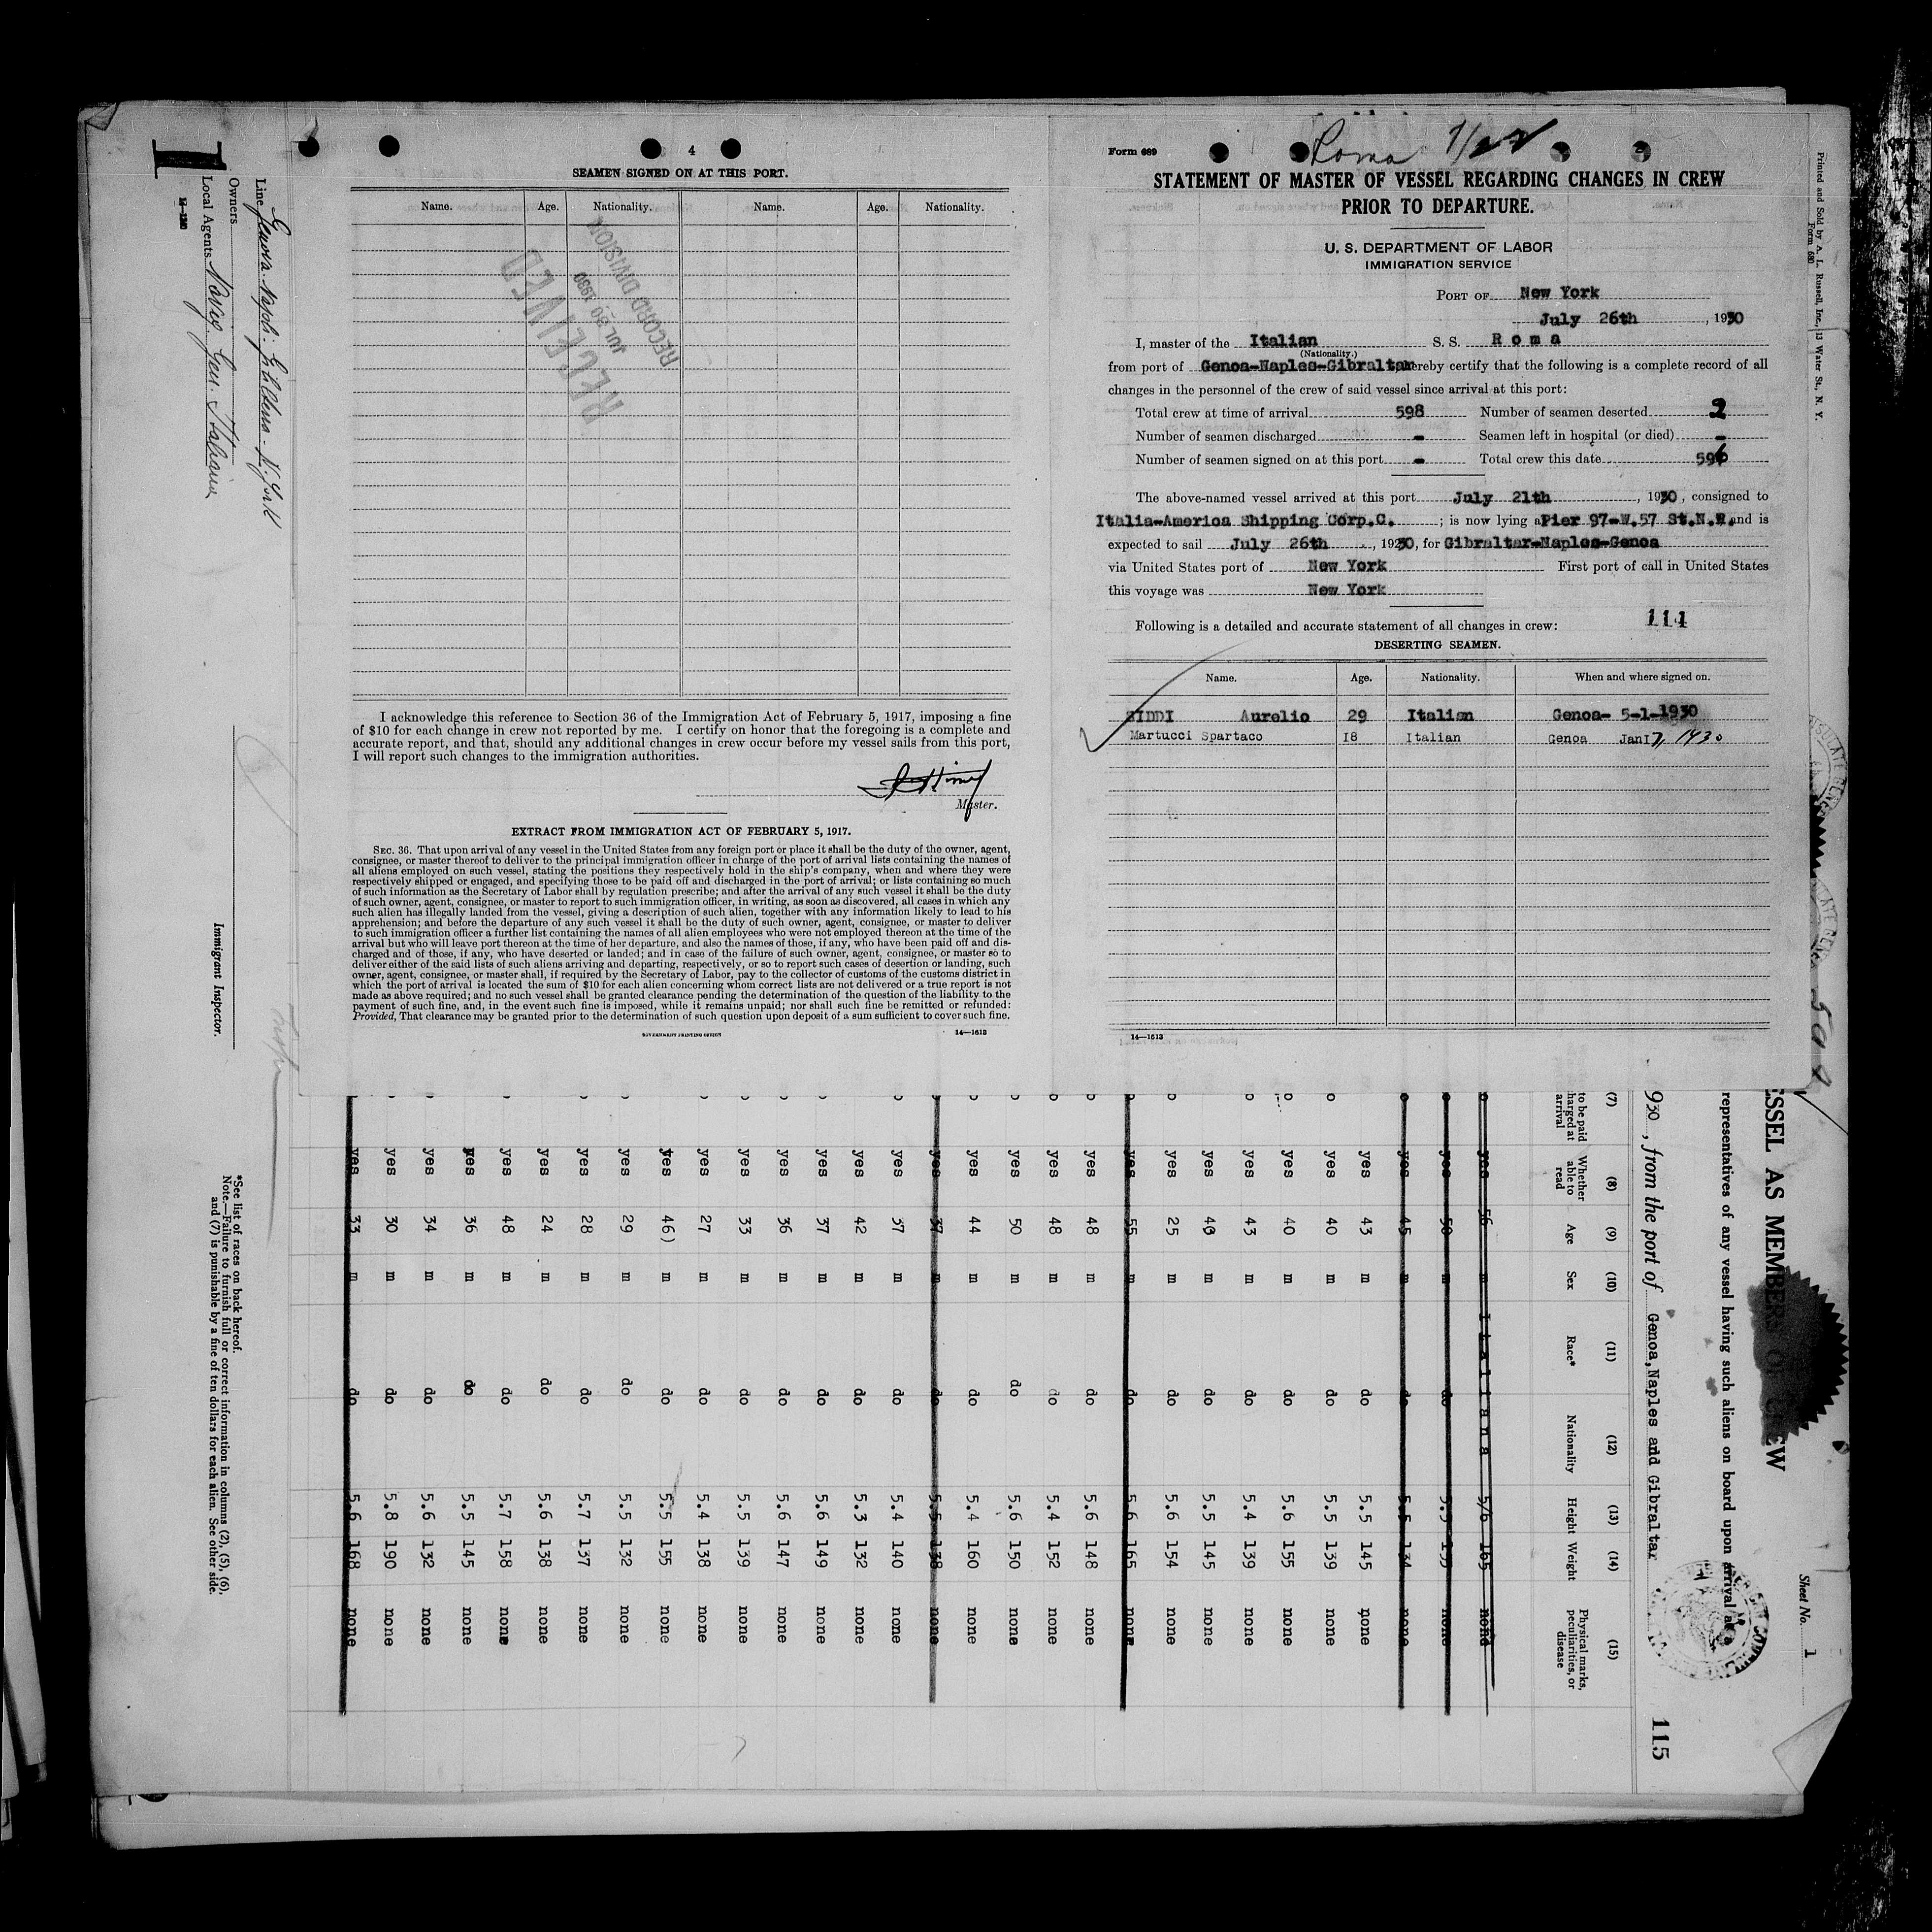 4
SEAMEN SIGNED ON AT THIS PORT.
Name. Age. Nationality. Name. Age. Nationality.
RECEIVED
JUL 30 1930
RECORD DIVISION
I acknowledge this reference to Section 36 of the Immigration Act of February 5, 1917, imposing a fine
of $10 for each change in crew not reported by me. I certify on honor that the foregoing is a complete and
accurate report, and that, should any additional changes in crew occur before my vessel sails from this port,
I will report such changes to the immigration authorities.
Master.
EXTRACT FROM IMMIGRATION ACT OF FEBRUARY 5, 1917.
SEC. 36. That upon arrival of any vessel in the United States from any foreign port or place it shall be the duty of the owner, agent,
consignee, or master thereof to deliver to the principal immigration officer in charge of the port of arrival lists containing the names of
all aliens employed on such vessel, stating the positions they respectively hold in the ship's company, when and where they were
respectively shipped or engaged, and specifying those to be paid off and discharged in the port of arrival; or lists containing so much
of such information as the Secretary of Labor shall by regulation prescribe; and after the arrival of any such vessel it shall be the duty
of such owner, agent, consignee, or master to report to such immigration officer, in writing, as soon as discovered, all cases in which any
such alien has illegally landed from the vessel, giving a description of such alien, together with any information likely to lead to his
apprehension; and before the departure of any such vessel it shall be the duty of such owner, agent, consignee, or master to deliver
to such immigration officer a further list containing the names of all alien employees who were not employed thereon at the time of the
arrival but who will leave port thereon at the time of her departure, and also the names of those, if any, who have been paid off and dis-
charged and of those, if any, who have deserted or landed; and in case of the failure of such owner, agent, consignee, or master so to
deliver either of the said lists of such aliens arriving and departing, respectively, or so to report such cases of desertion or landing, such
owner, agent, consignee, or master shall, if required by the Secretary of Labor, pay to the collector of customs of the customs district in
which the port of arrival is located the sum of $10 for each alien concerning whom correct lists are not delivered or a true report is not
made as above required; and no such vessel shall be granted clearance pending the determination of the question of the liability to the
payment of such fine, and, in the event such fine is imposed, while it remains unpaid; nor shall such fine be remitted or refunded:
Provided, That clearance may be granted prior to the determination of such question upon deposit of a sum sufficient to cover such fine.
GOVERNMENT PRINTING OFFICE 14—1613
Form 689
Roma 7/22
STATEMENT OF MASTER OF VESSEL REGARDING CHANGES IN CREW
PRIOR TO DEPARTURE.
U. S. DEPARTMENT OF LABOR
IMMIGRATION SERVICE
PORT OF New York
July 26th, 1930
I, master of the Italian S. S. Roma
(Nationality.)
from port of Genoa-Naples-Gibraltar hereby certify that the following is a complete record of all
changes in the personnel of the crew of said vessel since arrival at this port:
Total crew at time of arrival 598 Number of seamen deserted 2
Number of seamen discharged - Seamen left in hospital (or died) -
Number of seamen signed on at this port - Total crew this date 596
The above-named vessel arrived at this port July 21th, 1930, consigned to
Italia-America Shipping Corp.C. ; is now lying a Pier 97-W.57 St.N.R. and is
expected to sail July 26th, 1930, for Gibraltar-Naples-Genoa
via United States port of New York First port of call in United States
this voyage was New York
Following is a detailed and accurate statement of all changes in crew: 114
DESERTING SEAMEN.
Name. Age. Nationality. When and where signed on.
SIDDI Aurelio 29 Italian Genoa- 5-1-1930
Martucci Spartaco 18 Italian Genoa Jan 17, 1930
14—1613
Printed and Sold by A. L. Russell, Inc., 13 Water St., N. Y.
Form 680
Sheet No. 1
SSEL AS MEMBERS OF CREW
representatives of any vessel having such aliens on board upon arrival a
930, from the port of Genoa,Naples and Gibraltar
115
(7) (8) (9) (10) (11) (12) (13) (14) (15)
to be paid
harged at
arrival
Whether
able to
read
Age
Sex
Race*
Nationality
Height
Weight
Physical marks,
peculiarities, or
disease
yes 56 m Italiana 5/6 165 none
yes 50 m do 5.5 none
yes 45 m do 5.5 134 none
yes 43 m do 5.5 145 none
yes 40 m do 5.5 139 none
yes 40 m do 5.6 155 none
yes 43 m do 5.4 139 none
yes 40 m do 5.5 145 none
yes 25 m do 5.6 154 none
yes 55 m do 5.6 165 none
yes 48 m do 5.6 148 none
yes 48 m do 5.4 152 none
yes 50 m do 5.6 150 none
yes 44 m do 5.4 160 none
yes 37 m do 5.5 138 none
yes 37 m do 5.4 140 none
yes 42 m do 5.3 132 none
yes 37 m do 5.6 149 none
yes 36 m do 5.6 147 none
yes 33 m do 5.5 139 none
yes 27 m do 5.4 138 none
yes 46) m do 5.5 155 none
yes 29 m do 5.5 132 none
yes 28 m do 5.7 137 none
yes 24 m do 5.6 138 none
yes 48 m do 5.7 158 none
yes 36 m do 5.5 145 none
yes 34 m do 5.6 132 none
yes 30 m do 5.8 190 none
yes 33 m do 5.6 168 none
Line Genova. Napoli. Gibilterra. N. York
Owners
Local Agents Navig. Gen. Italiana
Immigrant Inspector.
*See list of races on back hereof.
Note.—Failure to furnish full or correct information in columns (2), (5), (6),
and (7) is punishable by a fine of ten dollars for each alien. See other side.